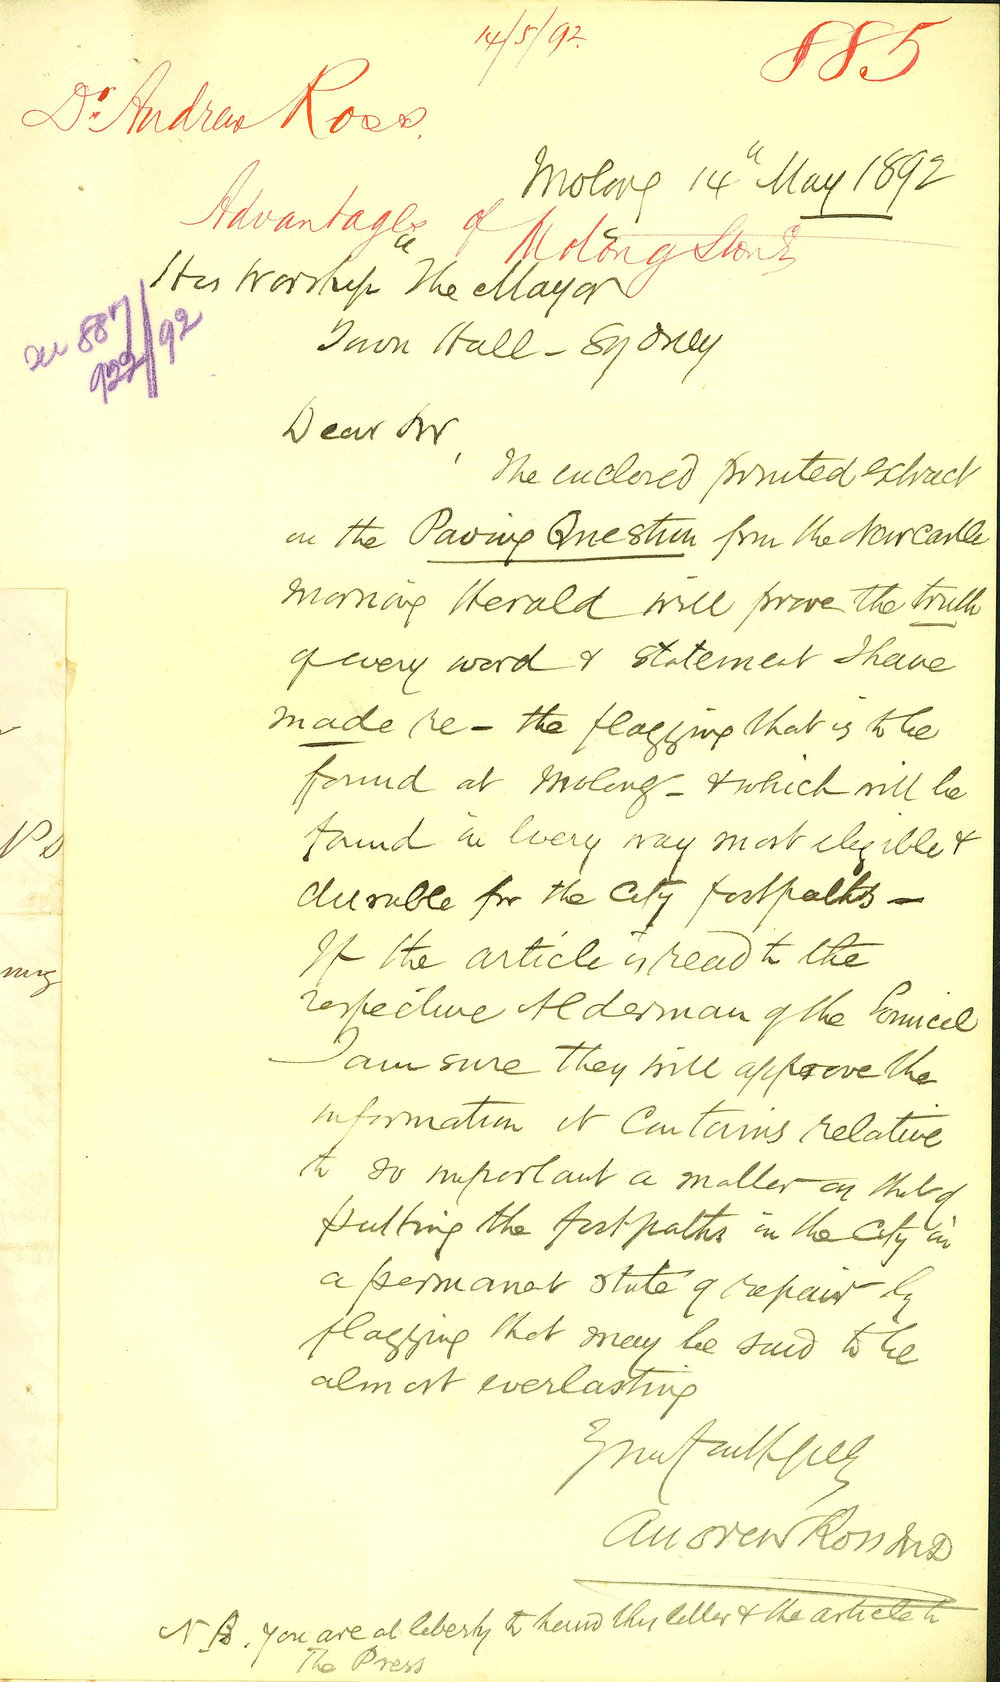 14/5/92.
885
Dr. Andrew Ross.
Molong 14" May 1892
Advantages of Molong Stone
His Worship The Mayor
Town Hall - Sydney
see 887/92
922
Dear Sir,
The enclosed printed extract
on the Paving Question from the Newcastle
Morning Herald will prove the truth
of every word & statement I have
made re - the flagging that is to be
found at Molong - & which will be
found in every way most eligible &
durable for the City footpaths -
If the article is read to the
respective Alderman of the Council
I am sure they will approve the
information it contains relative
to so important a matter as that of
putting the footpaths in the City in
a permanet state of repair by
flagging that may be said to be
almost everlasting
Yours faithfully
Andrew Ross M D
N B. You are at liberty to hand this letter & the article to
The Press